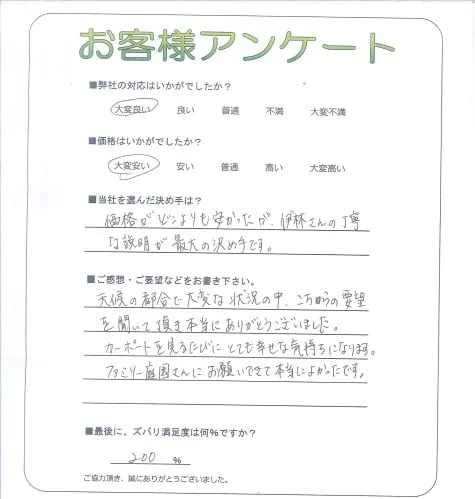 お客様アンケート
■弊社の対応はいかがでしたか？
大変良い 良い 普通 不満 大変不満
■価格はいかがでしたか？
大変安い 安い 普通 高い 大変高い
■当社を選んだ決め手は？
価格がどこよりも安かったが、伊林さんの丁寧
な説明が最大の決め手です。
■ご感想・ご要望などをお書き下さい。
天候の都合で大変な状況の中、こちらの要望
を聞いて頂き本当にありがとうございました。
カーポートを見るたびにとても幸せな気持ちになります。
ファミリー庭園さんにお願いできて本当によかったです。
■最後に、ズバリ満足度は何％ですか？
200 %
ご協力頂き、誠にありがとうございました。